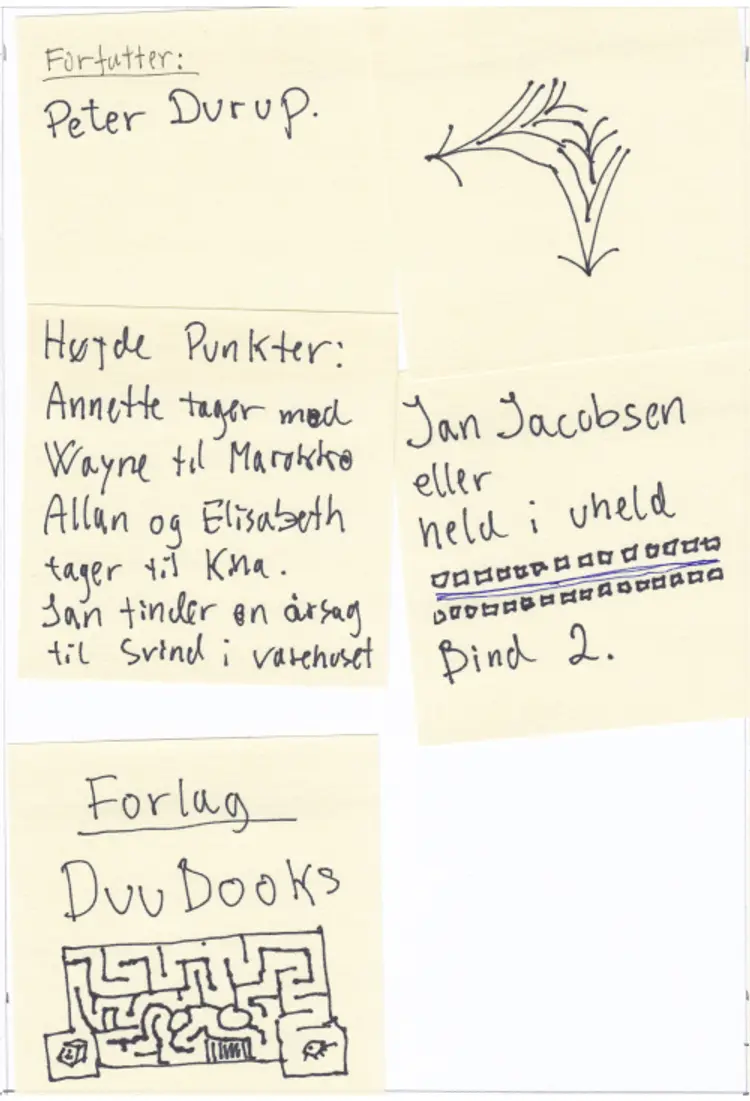 Forfatter:
Peter Durup.
Højde Punkter:
Annette tager med
Wayne til Marokko
Allan og Elisabeth
tager til Kina.
Jan finder en årsag
til Svind i varehuset
Jan Jacobsen
eller
held i uheld
Bind 2.
Forlag
DuuBooks